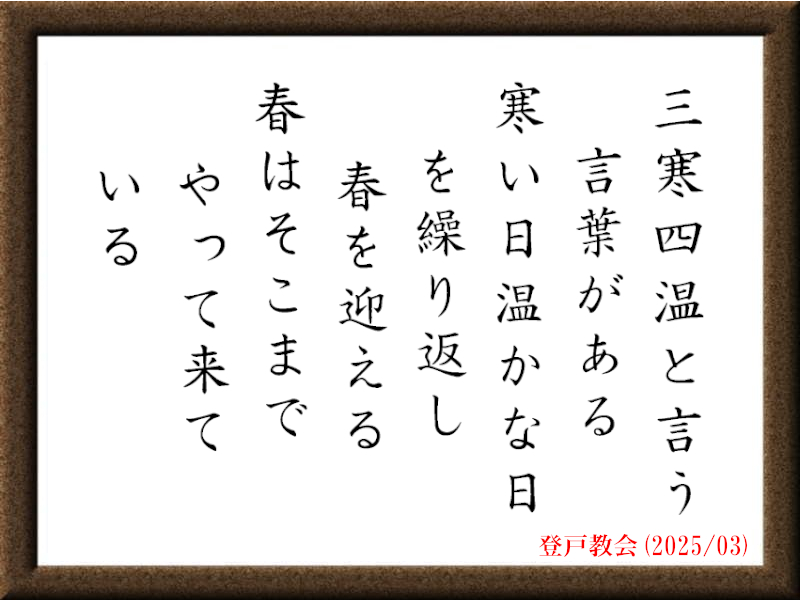 三寒四温と言う
言葉がある
寒い日温かな日
を繰り返し
春を迎える
春はそこまで
やって来て
いる
登戸教会(2025/03)